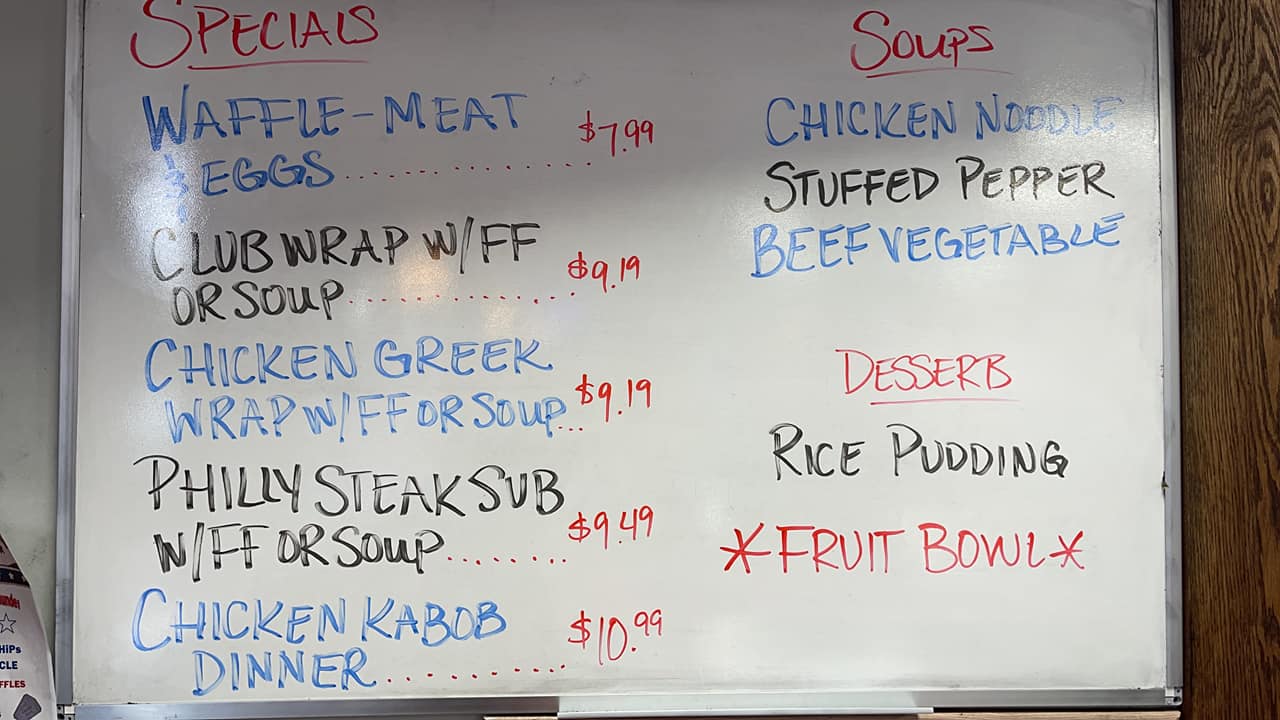 SPECIALS
WAFFLE-MEAT
& EGGS ............... $7.99
CLUB WRAP W/FF
OR SOUP ............... $9.19
CHICKEN GREEK
WRAP W/FF OR SOUP... $9.19
PHILLY STEAK SUB
W/FF OR SOUP........ $9.49
CHICKEN KABOB
DINNER ............ $10.99
SOUPS
CHICKEN NOODLE
STUFFED PEPPER
BEEF VEGETABLE
DESSERTS
RICE PUDDING
*FRUIT BOWL*
HiPs
CLE
FFLES